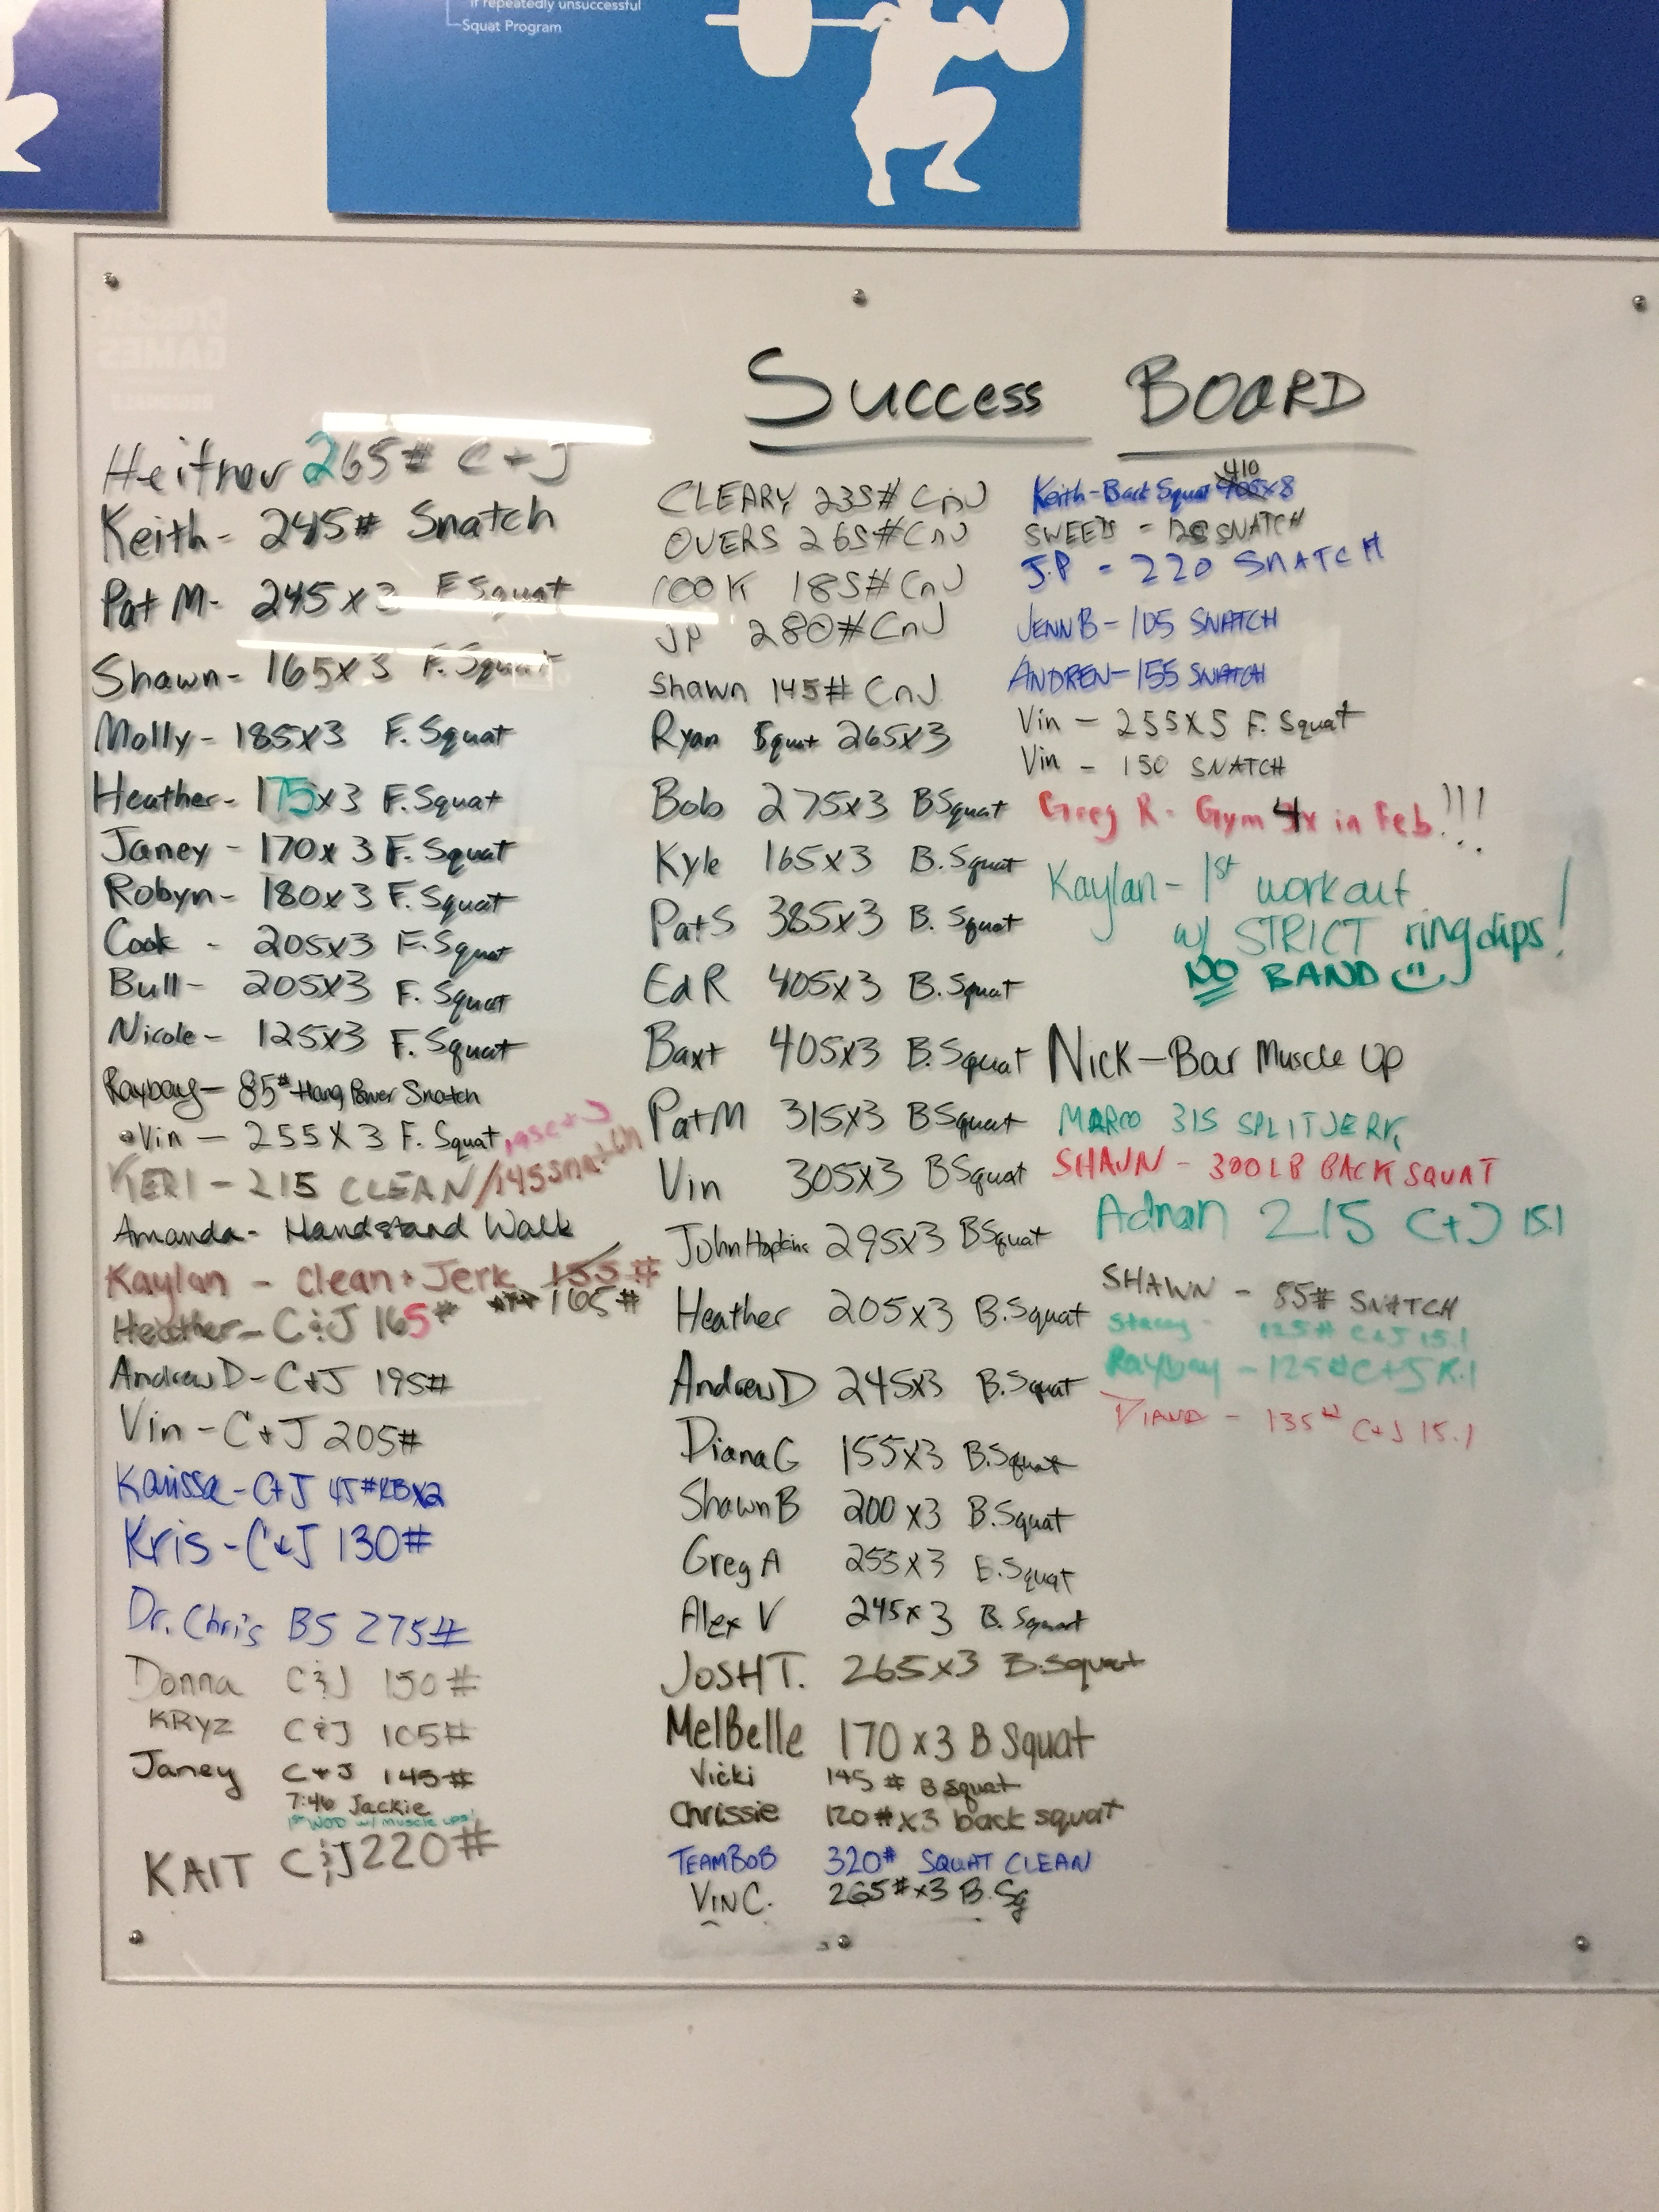 if repeatedly unsuccessful
Squat Program
Success BOARD
Heitner 265# C+J
Keith- 245# Snatch
Pat M- 245x3 F Squat
Shawn- 165x3 F. Squat
Molly- 185x3 F. Squat
Heather- 175x3 F. Squat
Janey - 170x3 F. Squat
Robyn- 180x3 F. Squat
Cook - 205x3 F. Squat
Bull- 205x3 F. Squat
Nicole- 125x3 F. Squat
Raybay- 85# Hang Power Snatch
•Vin - 255X3 F. Squat,
KERI - 215 CLEAN/145 snatch
Amanda- Handstand Walk
Kaylan - Clean + Jerk 155#
165#
Heather- C&J 165#
Andrew D- C+J 195#
Vin - C+J 205#
Karissa- C+J 45#KBx2
Kris- C&J 130#
Dr. Chris BS 275#
Donna C&J 150#
KRyz C&J 105#
Janey C+J 145#
7:46 Jackie
1st WOD w/ muscle ups!
KAIT C&J 220#
CLEARY 235# CnJ
OVERS 265# CnJ
COOK 185# CnJ
JP 280# CnJ
Shawn 145# CnJ
Ryan Squat 265x3
Bob 275x3 BSquat
Kyle 165x3 B.Squat
Pat S 385x3 B. Squat
Ed R 405x3 B. Squat
Baxt 405x3 B.Squat
Pat M 315x3 BSquat
Vin 305x3 BSquat
John Hopkins 295x3 BSquat
Heather 205x3 B.Squat
Andrew D 245x3 B.Squat
Diana G 155x3 B.Squat
Shawn B 200x3 B.Squat
Greg A 255x3 B.Squat
Alex V 245x3 B. Squat
JOSH T. 265x3 B.Squat
MelBelle 170x3 B Squat
Vicki 145# B squat
Chrissie 120#x3 back squat
TEAMBOB 320# SQUAT CLEAN
VIN C. 265#x3 B.Sq
410
Keith-Back Squat 405x8
SWEETS = SNATCH
J.P = 220 SNATCH
JENN B- 105 SNATCH
ANDREW- 155 SNATCH
Vin - 255X5 F. Squat
Vin - 150 SNATCH
Greg R- Gym 4x in Feb.!!!
Kaylan- 1st workout
w/ STRICT ring dips!
NO BAND
Nick-Bar Muscle Up
MARCO 315 SPLIT JERK
SHAWN - 300LB BACK SQUAT
Adnan 215 C+J 15.1
SHAWN - 85# SNATCH
Stacey - 125# C+J 15.1
Raybay - 125# C+J 15.1
DIANA - 135# C+J 15.1